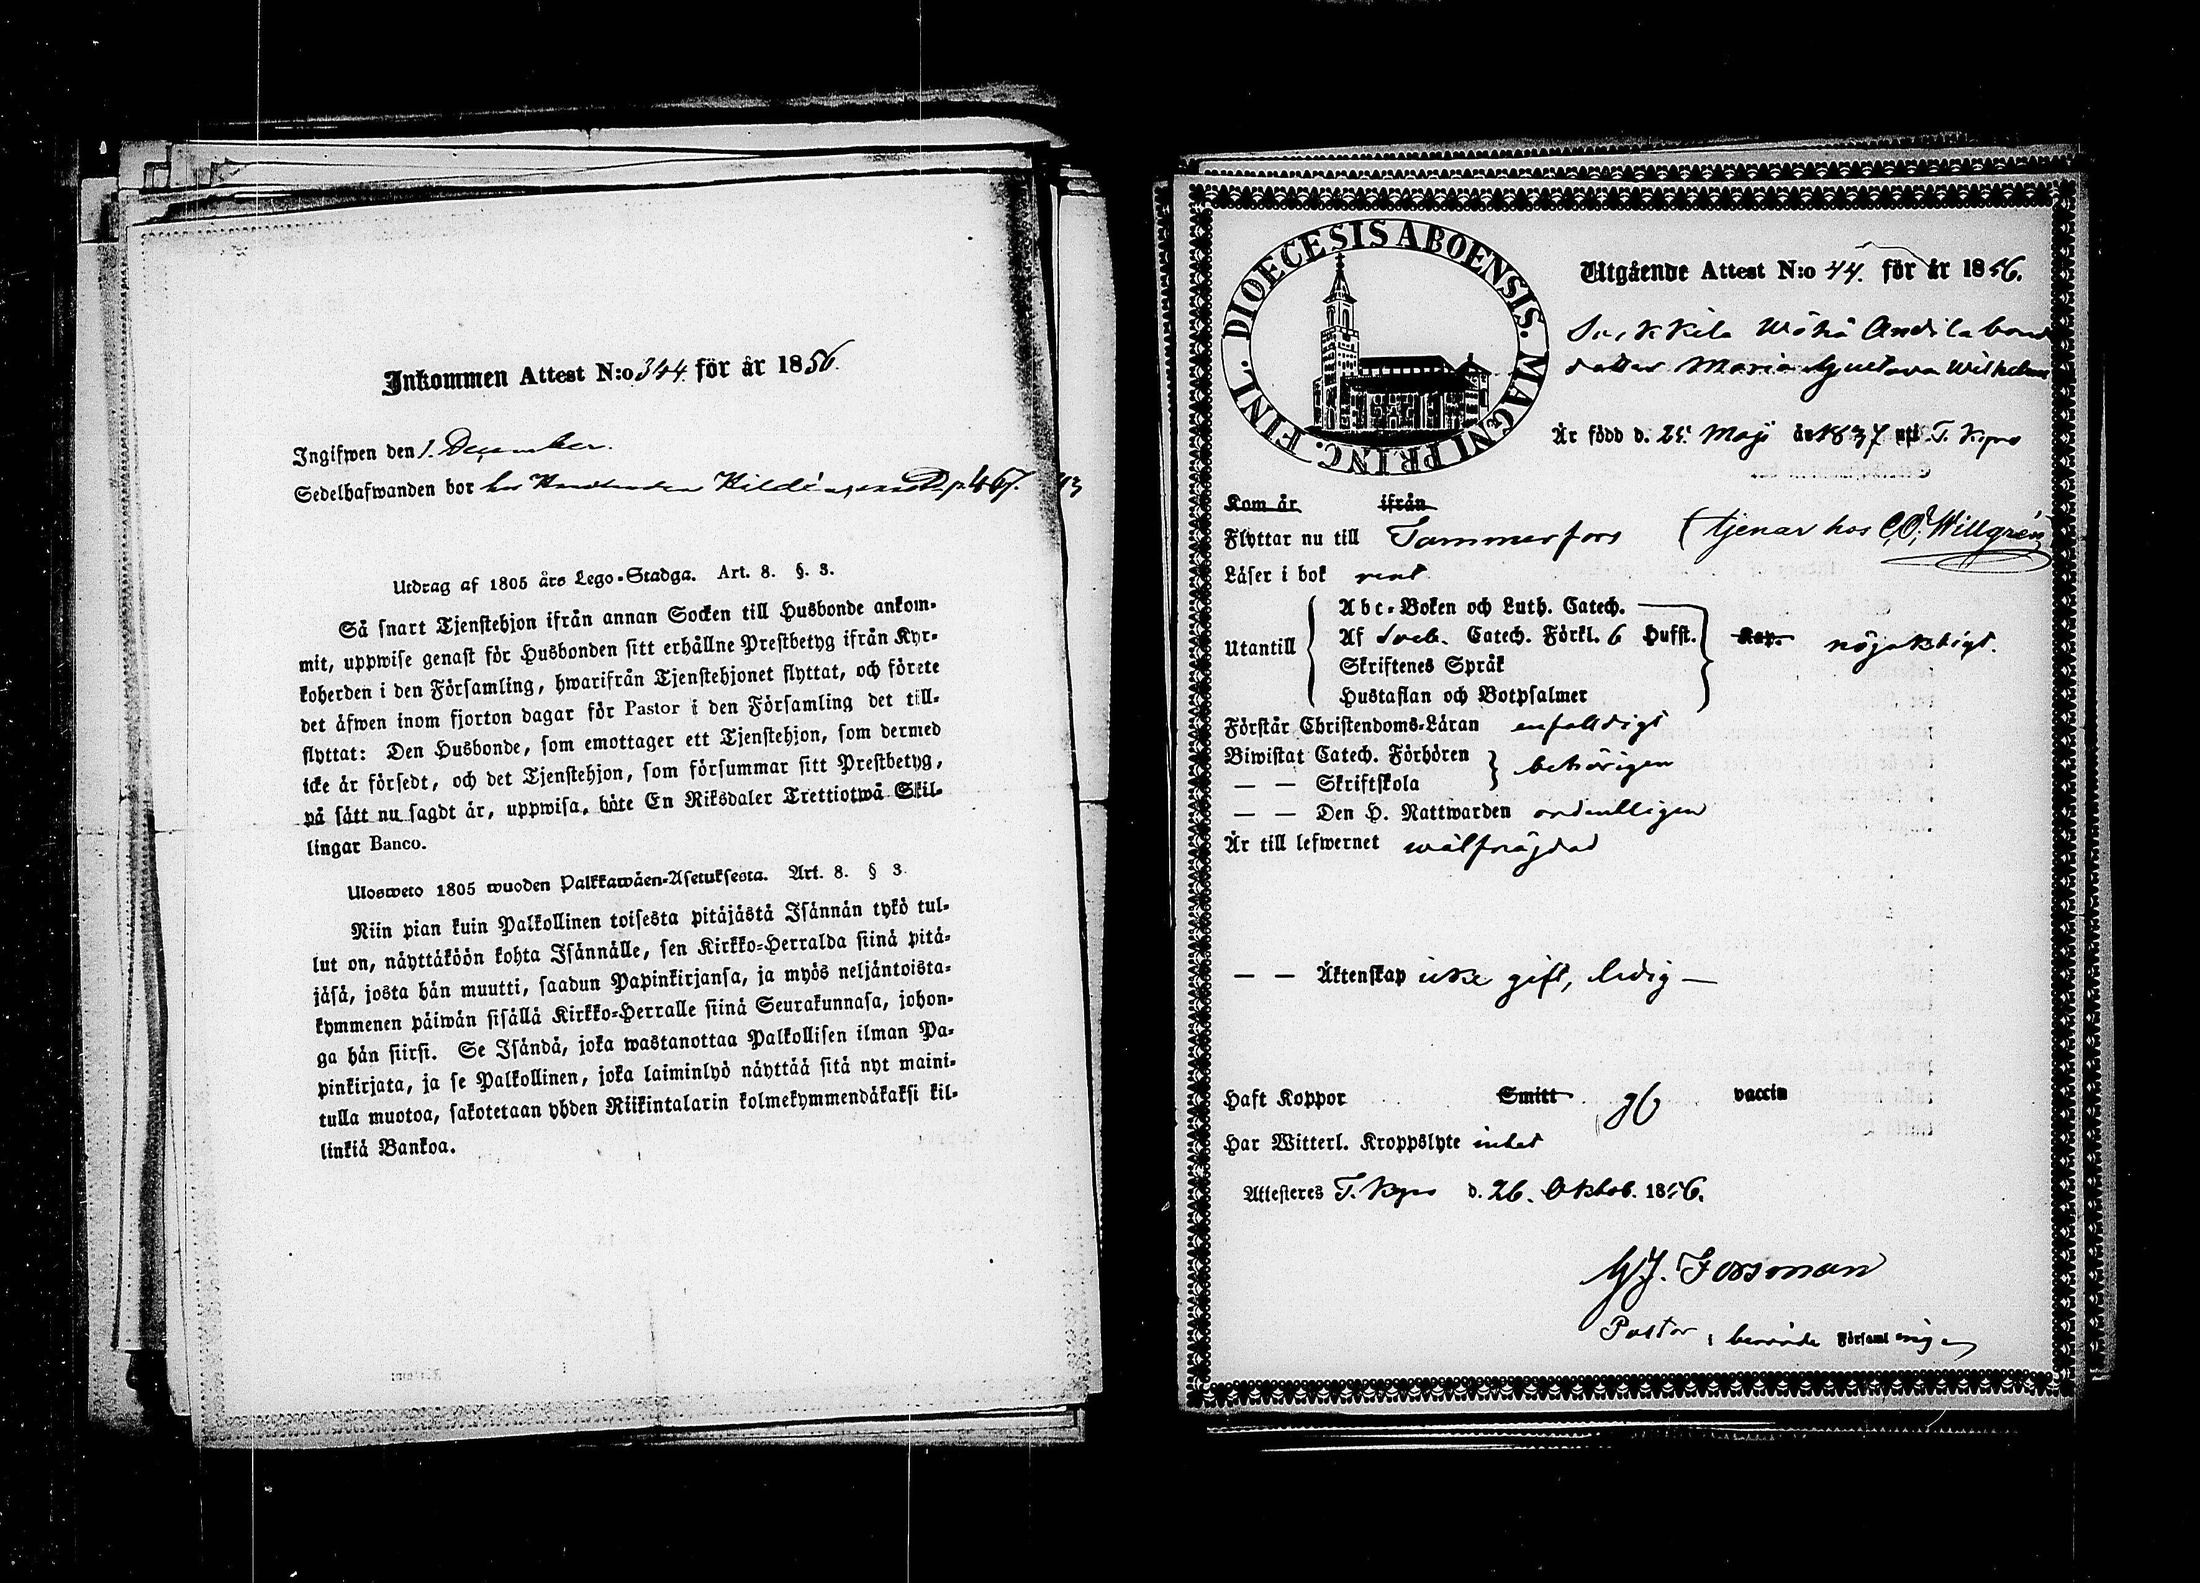 Inkommen Attest N:o 344. för år 1856.
Ingifwen den 1. December.
Sedelhafwanden bor hos p. 467.
Utdrag af 1805 års Lego-Stadga. Art. 8. §. 3.
Så snart Tjenstehjon ifrån annan Socken till Husbonde ankom-
mit, uppwise genast för Husbonden sitt erhållne Prestbetyg ifrån Kyr-
koherden i den Församling, hwarifrån Tjenstehjonet flyttat, och förete
det äfwen inom fjorton dagar för Pastor i den Församling det till-
flyttat: Den Husbonde, som emottager ett Tjenstehjon, som dermed
icke är försedt, och det Tjenstehjon, som försummar sitt Prestbetyg,
på sätt nu sagdt är, uppwisa, böte En Riksdaler Trettiotwå Skil-
lingar Banco.
Ulosweto 1805 wuoden Palkkawäen-Asetuksesta. Art. 8. § 3.
Niin pian kuin Palkollinen toisesta pitäjästä Isännän tykö tul-
lut on, näyttäköön kohta Isännälle, sen Kirkko-Herralda siinä pitä-
jäsä, josta hän muutti, saadun Papinkirjansa, ja myös neljäntoista-
kymmenen päiwän sisällä Kirkko-Herralle siinä Seurakunnasa, johon-
ga hän siirsi. Se Isändä, joka wastanottaa Palkollisen ilman Pa-
pinkirjata, ja se Palkollinen, joka laiminlyö näyttää sitä nyt maini-
tulla muotoa, sakotetaan yhden Riikintalarin kolmekymmendäkaksi kil-
linkiä Bankoa.
DIOECESIS ABOENSIS. MAGNI PRINC. FINL.
Utgående Attest N:o 44. för år 1856.
Wähä Andila bonde
dotter Maria Gustava Wilhelmina
Är född d. 25 Maji år 1837 uti T. Kyro
Kom år ifrån
Flyttar nu till Tammerfors (tjenar hos C.O. Willgrén
Läser i bok rent
Utantill
Abc-Boken och Luth. Catech.
Af Sveb. Catech. Förkl. 6 Hufst.
Skriftenes Språk
Hustaflan och Botpsalmer
Kap. nöjaktigt.
Förstår Christendoms-Läran enfaldigt
Biwistat Catech. Förhören
— — Skriftskola
behörigen
— — Den H. Nattwarden ordentligen
Är till lefwernet wälfrägdad
— — Äktenskap icke gift, ledig —
Haft Koppor Smitt vaccin
Har Witterl. Kroppslyte intet
Attesteres T. Kyro d. 26. Oktob. 1856.
G J. Forsman
Pastor i berörde Församlingen